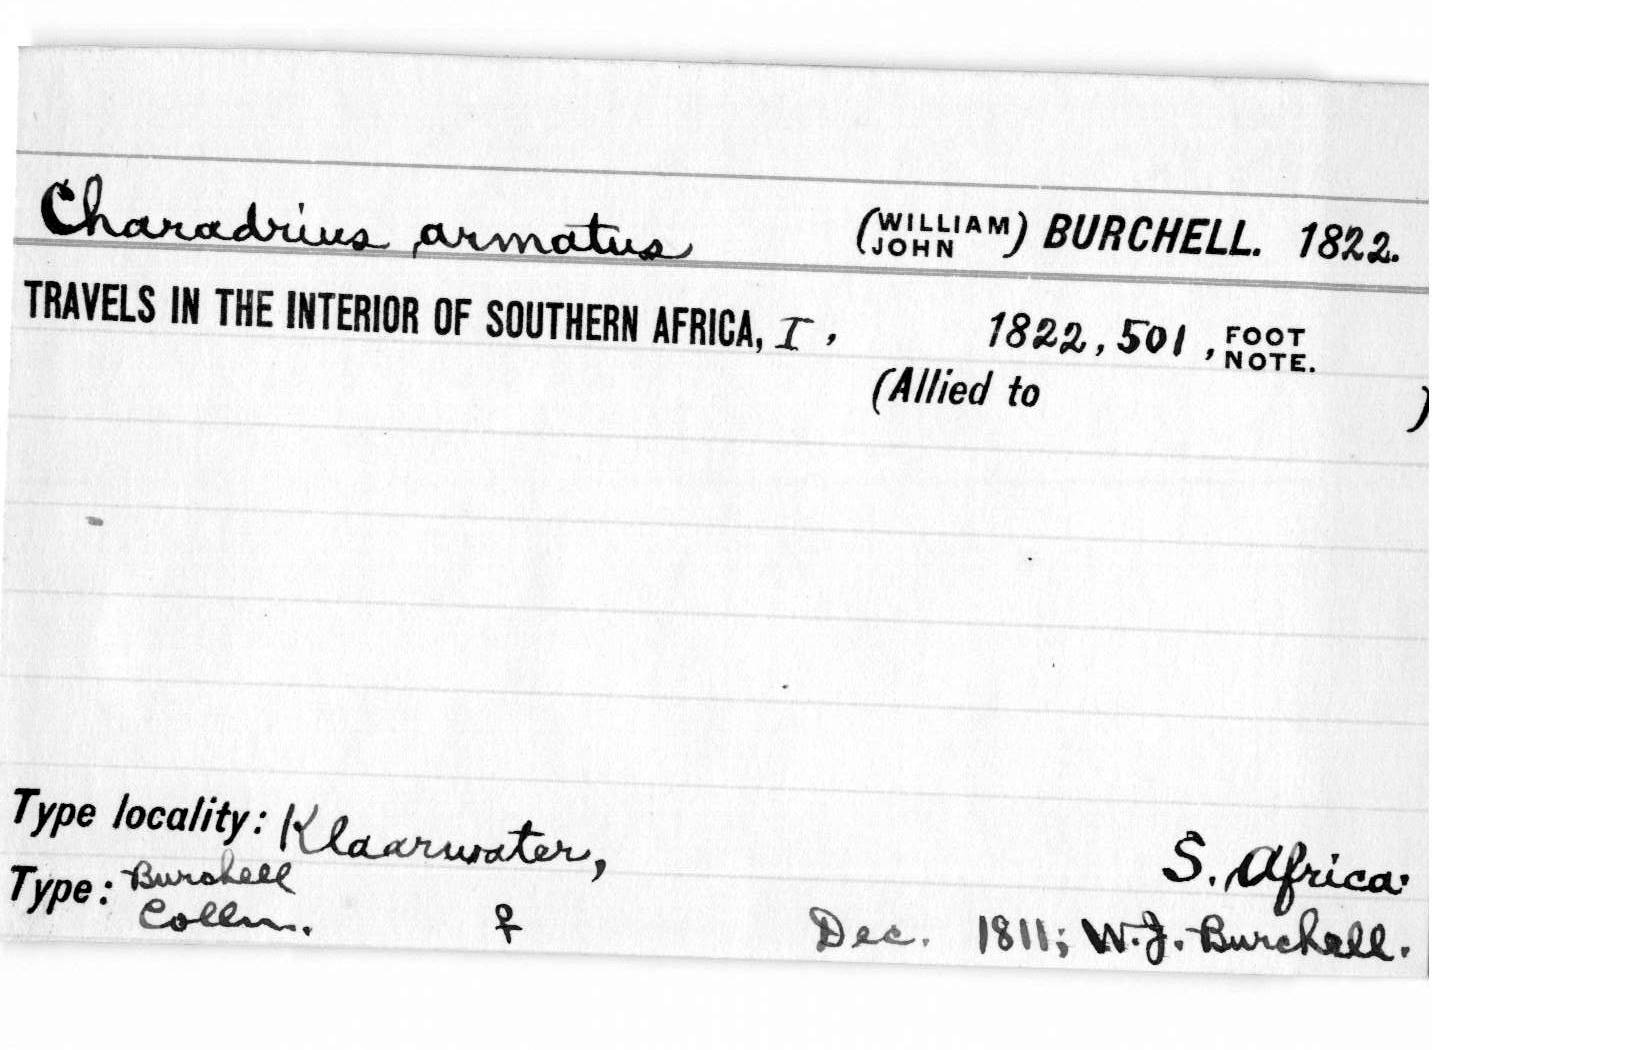 Charadrius armatus (WILLIAM JOHN) BURCHELL. 1822.
TRAVELS IN THE INTERIOR OF SOUTHERN AFRICA, I, 1822, 501, FOOT NOTE.
(Allied to )
Type locality: Klaarwater, S. Africa.
Type: Burchell Colln. ♀ Dec. 1811; W.J. Burchell.